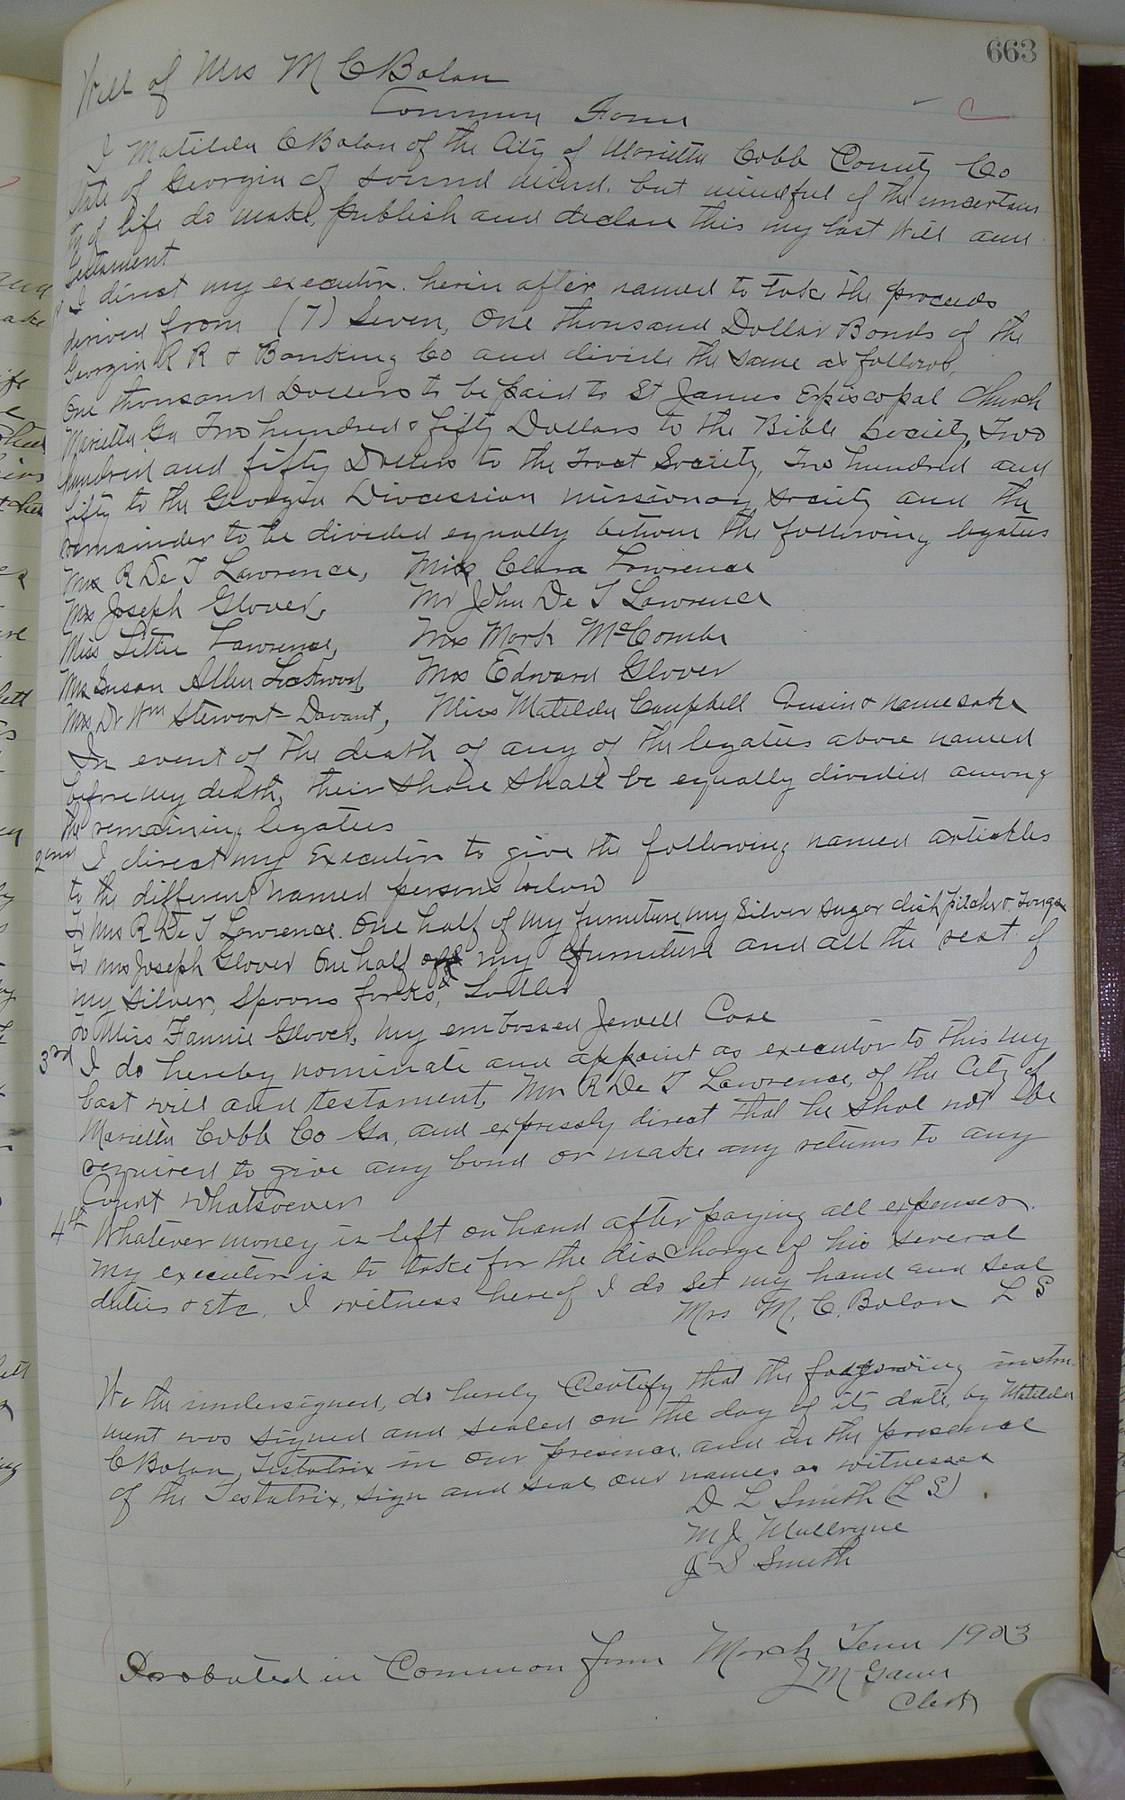 663
Will of Mrs M C Bolan
Common Form
I Matilda C Bolan of the City of Marietta Cobb County Co
State of Georgia of sound mind. but mindful of the uncertain
ty of life do make, publish and declare this my last Will and
Testament
I direct my executor. herein after named to take the proceeds
derived from (7) Seven, One thousand Dollar Bonds of the
Georgia R R & Banking Co and divide the same as follows,
One thousand Dollars to be paid to St James Episcopal Church
Marietta Ga Two hundred & fifty Dollars to the Bible Society, Two
hundred and fifty Dollars to the Tract Society, Two hundred and
fifty to the Georgia Diocession missionary society and the
remainder to be divided equally between the following legatees
Mrs R De T Lawrence, Miss Clara Lawrence
Mrs Joseph Glover, Mr John De T Lawrence
Miss Lettie Lawrence, Mrs Mark McCombs
Mrs Susan Allen Lockwood, Mrs Edward Glover
Mrs Dr Wm Stewart Davant, Miss Matilda Campbell Cousin & namesake
In event of the death of any of the legatees above named
before my death, their share shall be equally divided among
the remaining legatees
2nd I direct my Executor to give the following named
to the different named persons below
To Mrs R De T Lawrence. One half of my furniture, my Silver sugar dish, pitcher & Tongs
To Mrs Joseph Glover One half of my furniture and all the rest of
my silver, Spoons forks, & Ladles
To Miss Fannie Glover, my embossed Jewell Case
3rd I do hereby nominate and appoint as executor to this my
last will and testament, Mr R De T Lawrence, of the City of
Marietta Cobb Co Ga, and expressly direct that he shal not be
required to give any bond or make any returns to any
Court whatsoever
4th Whatever money is left on hand after paying all expenses.
my executor is to take for the discharge of his several
duties & etc. I witness hereof I do set my hand and seal
Mrs M. C. Bolan L S
We the undersigned, do hereby Certify that the instru
ment was signed and sealed on the day of its date, by Matilda
C Bolan, Testatrix in our presence, and in the presence
of the Testatrix, sign and seal our names as witnesses
D L Smith (L S)
M J Mullryne
J S Smith
Probated in Common form March Term 1903
J M Gann
Clerk